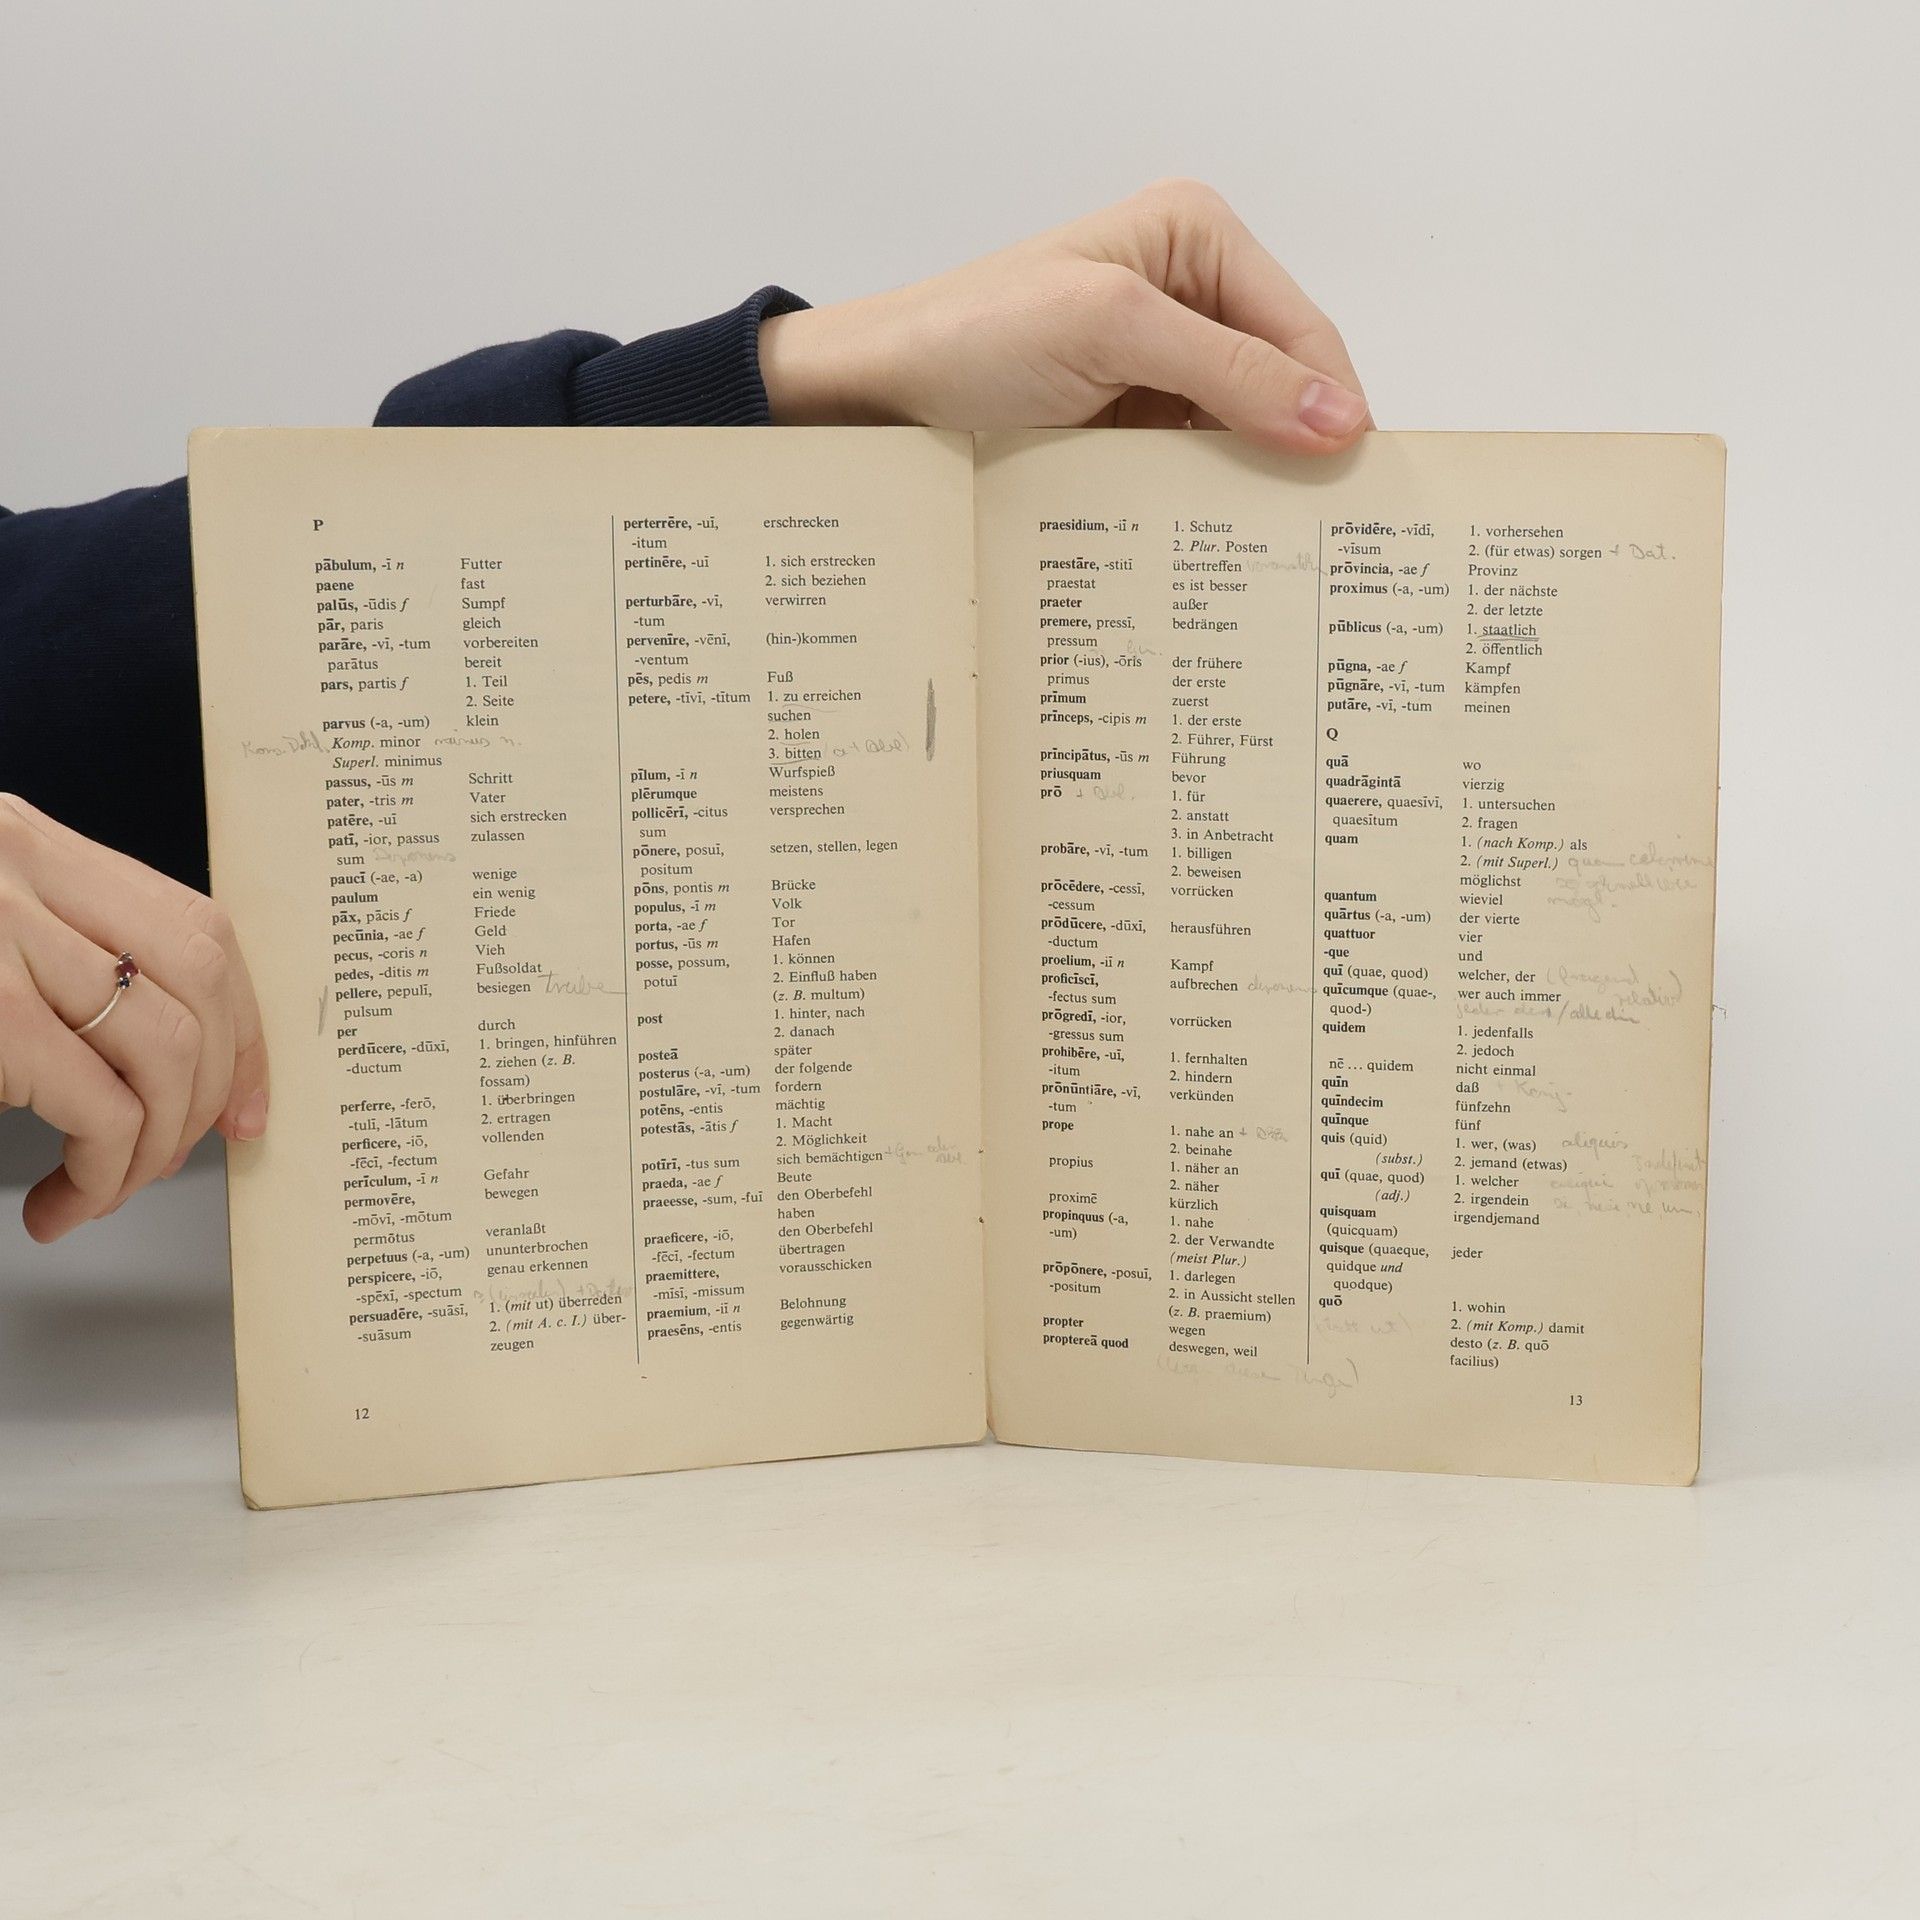 P
pābulum, -ī n Futter
paene fast
palūs, -ūdis f Sumpf
pār, paris gleich
parāre, -vī, -tum vorbereiten
parātus bereit
pars, partis f 1. Teil
2. Seite
parvus (-a, -um) klein
Komp. minor minus n.
Superl. minimus
passus, -ūs m Schritt
pater, -tris m Vater
patēre, -uī sich erstrecken
patī, -ior, passus zulassen
sum Deponens
paucī (-ae, -a) wenige
paulum ein wenig
pāx, pācis f Friede
pecūnia, -ae f Geld
pecus, -coris n Vieh
pedes, -ditis m Fußsoldat
pellere, pepulī, besiegen
pulsum
per durch
perdūcere, -dūxī, 1. bringen, hinführen
-ductum 2. ziehen (z. B.
fossam)
perferre, -ferō, 1. überbringen
-tulī, -lātum 2. ertragen
perficere, -iō, vollenden
-fēcī, -fectum
perīculum, -ī n Gefahr
permovēre, bewegen
-mōvī, -mōtum
permōtus veranlaßt
perpetuus (-a, -um) ununterbrochen
perspicere, -iō, genau erkennen
-spēxī, -spectum
persuadēre, -suāsī, 1. (mit ut) überreden
-suāsum 2. (mit A. c. I.) über-
zeugen
perterrēre, -uī, erschrecken
-itum
pertinēre, -uī 1. sich erstrecken
2. sich beziehen
perturbāre, -vī, verwirren
-tum
pervenīre, -vēnī, (hin-)kommen
-ventum
pēs, pedis m Fuß
petere, -tīvī, -tītum 1. zu erreichen
suchen
2. holen
3. bitten
pīlum, -ī n Wurfspieß
plērumque meistens
pollicērī, -citus versprechen
sum
pōnere, posuī, setzen, stellen, legen
positum
pōns, pontis m Brücke
populus, -ī m Volk
porta, -ae f Tor
portus, -ūs m Hafen
posse, possum, 1. können
potuī 2. Einfluß haben
(z. B. multum)
post 1. hinter, nach
2. danach
posteā später
posterus (-a, -um) der folgende
postulāre, -vī, -tum fordern
potēns, -entis mächtig
potestās, -ātis f 1. Macht
2. Möglichkeit
potīrī, -tus sum sich bemächtigen
praeda, -ae f Beute
praeesse, -sum, -fuī den Oberbefehl
haben
praeficere, -iō, den Oberbefehl
-fēcī, -fectum übertragen
praemittere, vorausschicken
-mīsī, -missum
praemium, -iī n Belohnung
praesēns, -entis gegenwärtig
12
praesidium, -iī n 1. Schutz
2. Plur. Posten
praestāre, -stitī übertreffen
praestat es ist besser
praeter außer
premere, pressī, bedrängen
pressum
prior (-ius), -ōris der frühere
primus der erste
prīmum zuerst
prīnceps, -cipis m 1. der erste
2. Führer, Fürst
prīncipātus, -ūs m Führung
priusquam bevor
prō + Abl. 1. für
2. anstatt
3. in Anbetracht
probāre, -vī, -tum 1. billigen
2. beweisen
prōcēdere, -cessī, vorrücken
-cessum
prōdūcere, -dūxī, herausführen
-ductum
proelium, -iī n Kampf
proficīscī, aufbrechen deponens
-fectus sum
prōgredī, -ior, vorrücken
-gressus sum
prohibēre, -uī, 1. fernhalten
-itum 2. hindern
prōnūntiāre, -vī, verkünden
-tum
prope 1. nahe an
2. beinahe
propius 1. näher an
2. näher
proximē kürzlich
propinquus (-a, 1. nahe
-um) 2. der Verwandte
(meist Plur.)
prōpōnere, -posuī, 1. darlegen
-positum 2. in Aussicht stellen
(z. B. praemium)
propter wegen
proptereā quod deswegen, weil
prōvidēre, -vīdī, 1. vorhersehen
-vīsum 2. (für etwas) sorgen + Dat.
prōvincia, -ae f Provinz
proximus (-a, -um) 1. der nächste
2. der letzte
pūblicus (-a, -um) 1. staatlich
2. öffentlich
pūgna, -ae f Kampf
pūgnāre, -vī, -tum kämpfen
putāre, -vī, -tum meinen
Q
quā wo
quadrāgintā vierzig
quaerere, quaesīvī, 1. untersuchen
quaesītum 2. fragen
quam 1. (nach Komp.) als
2. (mit Superl.)
möglichst
quantum wieviel
quārtus (-a, -um) der vierte
quattuor vier
-que und
quī (quae, quod) welcher, der
quīcumque (quae-, wer auch immer
quod-)
quidem 1. jedenfalls
2. jedoch
nē ... quidem nicht einmal
quīn daß
quīndecim fünfzehn
quīnque fünf
quis (quid) 1. wer, (was) aliquis
(subst.) 2. jemand (etwas)
quī (quae, quod) 1. welcher
(adj.) 2. irgendein
quisquam irgendjemand
(quicquam)
quisque (quaeque, jeder
quidque und
quodque)
quō 1. wohin
2. (mit Komp.) damit
desto (z. B. quō
facilius)
13